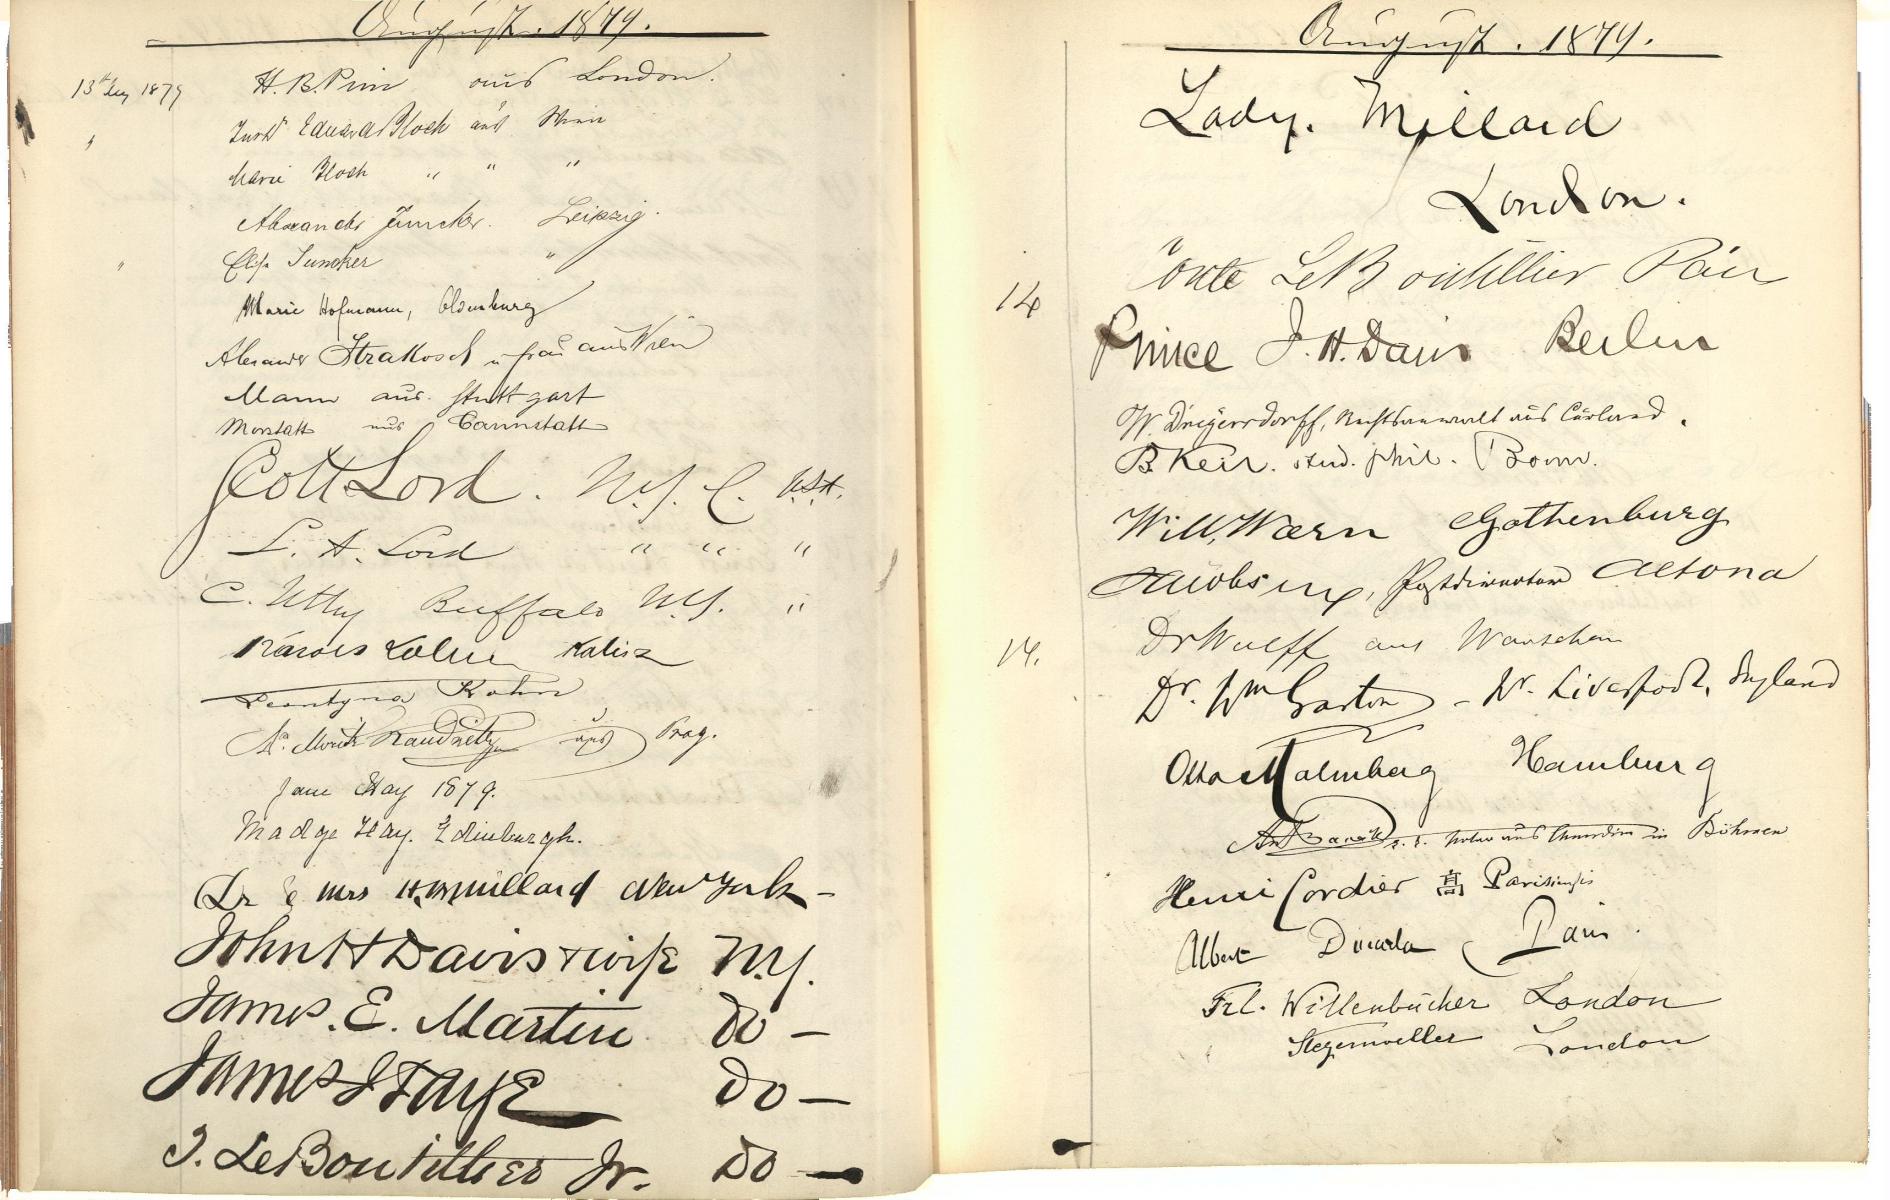 August. 1879.
13 Aug 1879 H. B. Pim aus London.
" Eduard Bloch aus Wien
Marie Bloch " " "
Alexander Juncker. Leipzig.
" Elise Juncker "
Marie Hofmann, Oldenburg
Alexander Strakosch u frau aus Wien
Mann aus Stuttgart
Morstatt aus Cannstatt
Scott Lord. N.Y. C. USA.
L. A. Lord " " "
C. Utley Buffalo N.Y. "
Kalisz
Leontyna Kohn
Moritz aus Prag.
Jane Hay 1879.
Madge Hay. Edinburgh.
Dr & Mrs H. Millard New York -
John H Davis & wife N.Y.
James. E. Martin Do -
James S Faye Do -
J. LeBoutillier Jr. Do -
August. 1879.
Lady. Millard
London.
14 Conte LeBoutillier
Prince J. H. Davis Berlin
W. Rechtsanwalt aus Curland.
B. Keil. stud. phil. Bonn.
Will. Wærn Gothenburg
Jacobsen, Postdirector Altona
14. Dr Wulff aus Warschau
Dr. Wm Garton - Nr. Liverpool, England
Otto Malmberg Hamburg
in Böhmen
Henri Cordier 高 Parisiensis
Albert Paris.
Frl. Willenbücher London
Stegemoeller London